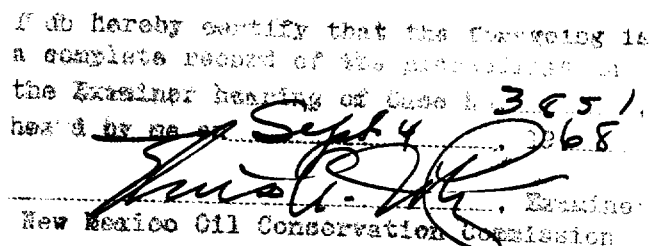 I do hereby certify that the foregoing is
a complete record of the proceedings in
the Examiner hearing of Case No. 3851,
heard by me on Sept 4, 1968
, Examiner
New Mexico Oil Conservation Commission